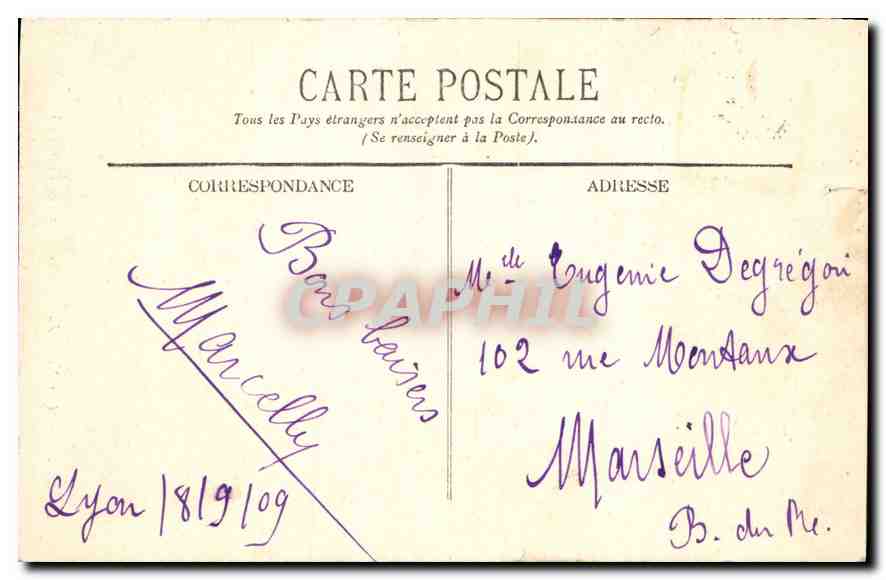 CARTE POSTALE
Tous les Pays étrangers n'acceptent pas la Correspondance au recto.
(Se renseigner à la Poste).
CORRESPONDANCE
Bons baisers
Marcelly
Lyon 18/9/09
ADRESSE
Melle Eugenie Degrégori
102 rue Montaux
Marseille
B. du Re.
CPAPHIL